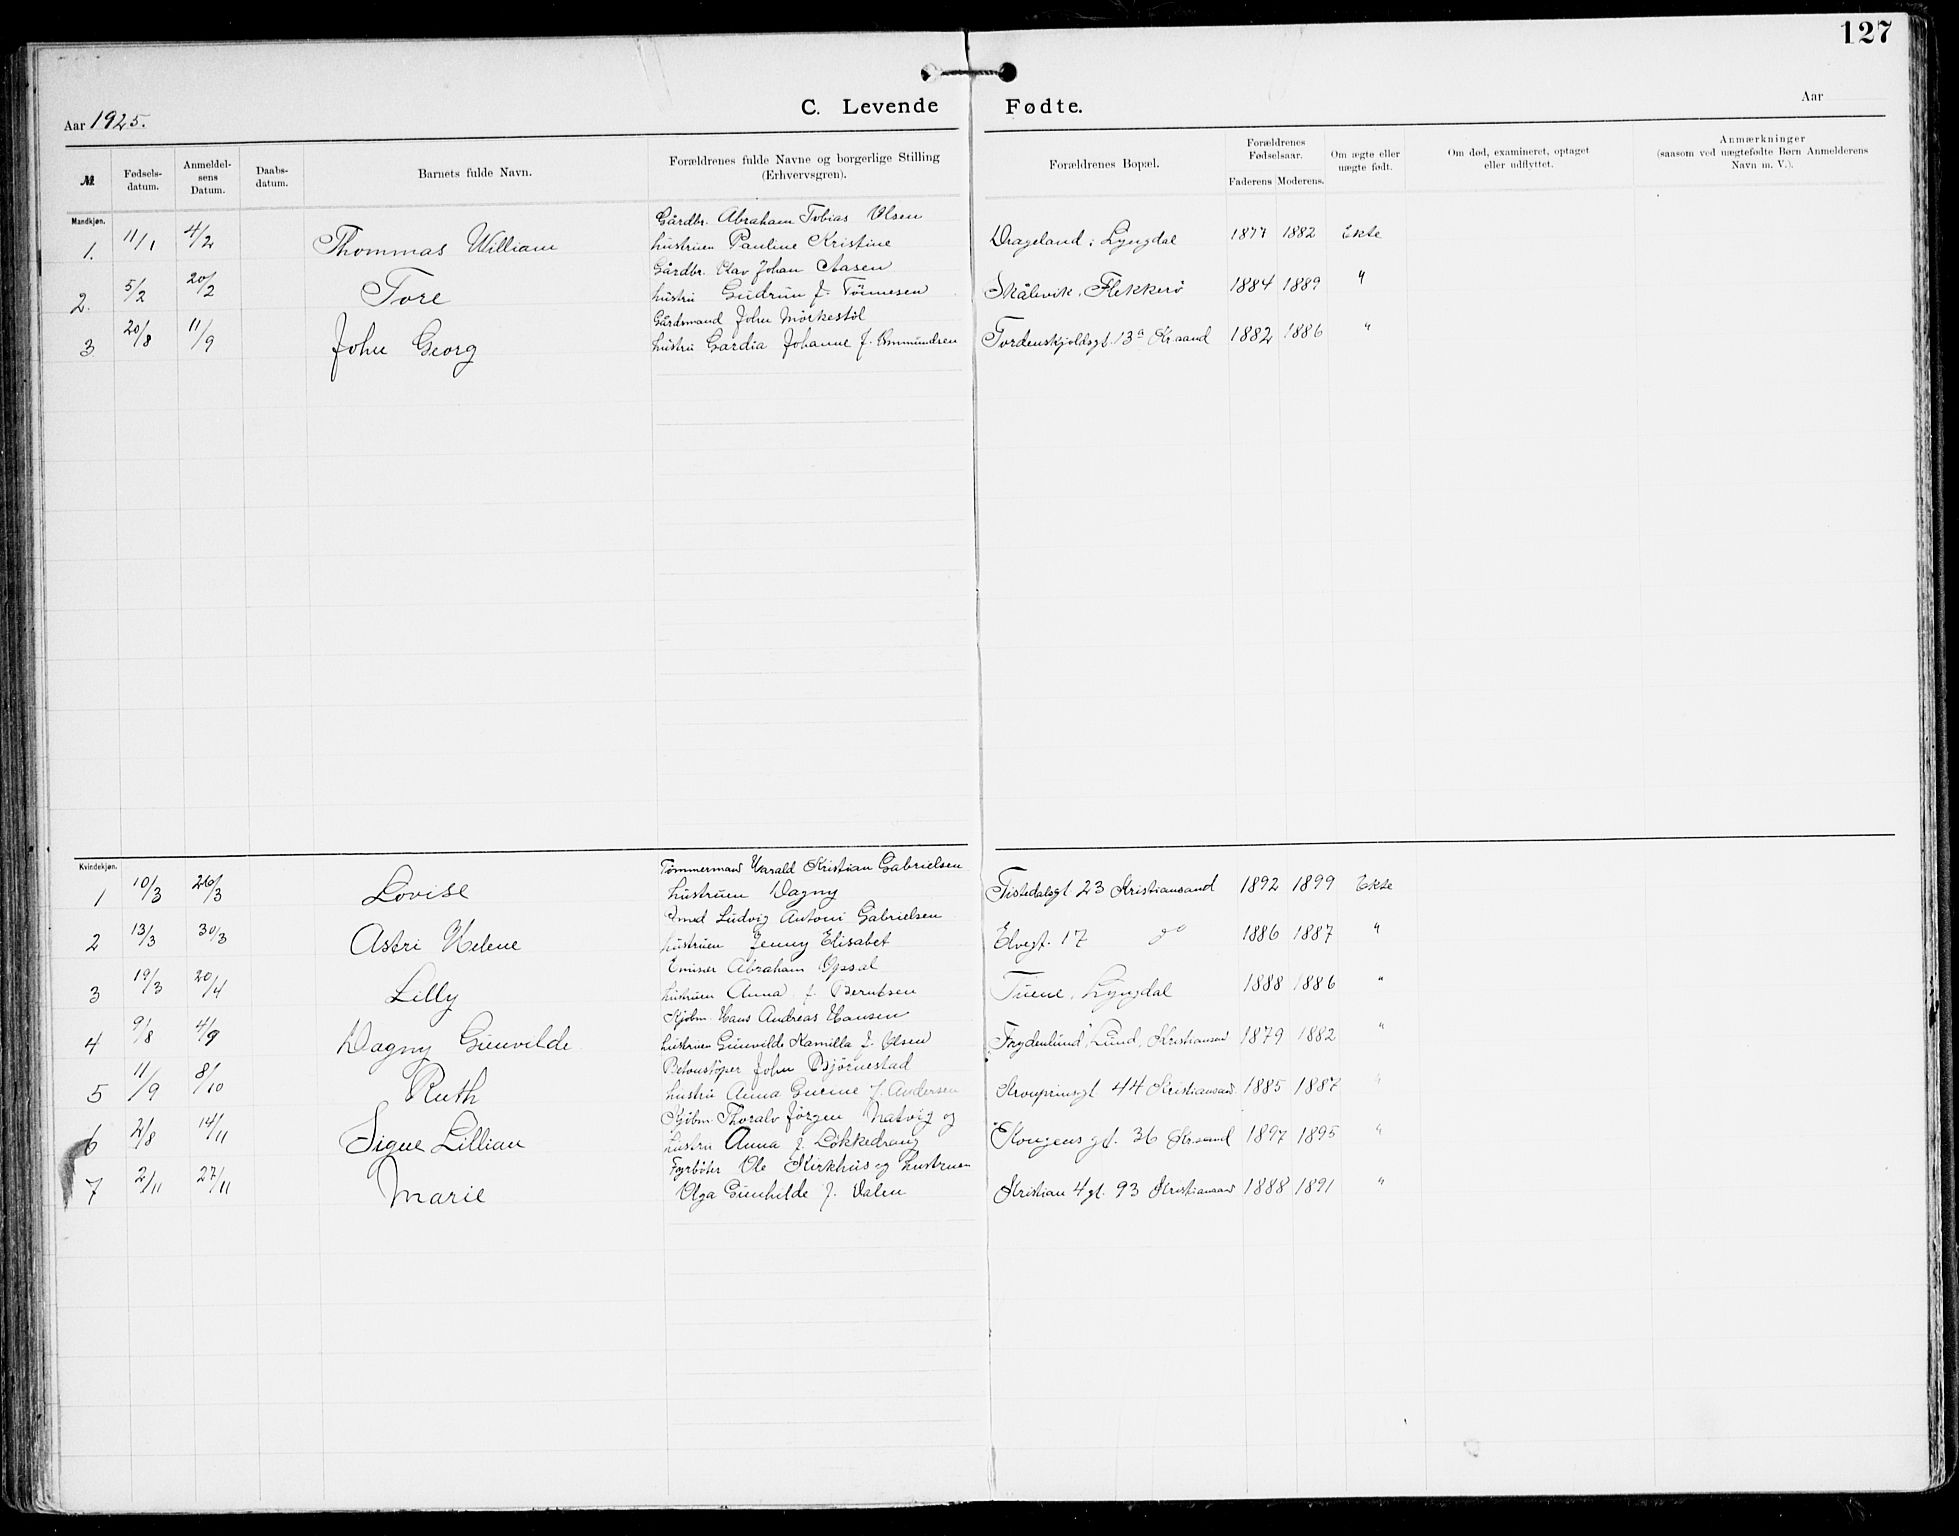 127
C. Levende Fødte.
Aar 1925. Aar
№ Fødsels-datum. Anmeldelsens Datum. Daabs-datum. Barnets fulde Navn. Forældrenes fulde Navne og borgerlige Stilling (Erhvervsgren). Forældrenes Bopæl. Forældrenes Fødselsaar. Faderens Moderens. Om ægte eller uægte født. Om død, examineret, optaget eller udflyttet. Anmærkninger (saasom ved uægtefødte Børn Anmelderens Navn m. V.).
Mandkjøn.
Gårdbr. Abraham Tobias Olsen
1. 11/1 4/2 Thommas William hustruen Pauline Kristine Drageland i Lyngdal 1877 1882 Ekte
Gårdbr. Olav Johan Aasen
2. 5/2 20/2 Tore hustru Gudrun f. Tønnesen Skålevik, Flekkerø 1884 1889 "
Gårdsmand John Mørkestøl
3 20/8 11/9 John Georg hustru Gardia Johanne f. Ommundsen Tordenskjoldsgt. 13a Kr.sand 1882 1886 "
Kvindekjøn.
Tømmermand Harald Kristian Gabrielsen
1 10/3 26/3 Lovise hustruen Dagny Tistedalsgt 23 Kristiansand 1892 1899 Ekte
Smed Ludvig Antoni Gabrielsen
2 13/3 30/3 Astri Helene hustruen Jenny Elisabet Elvegt. 17 do 1886 1887 "
Emisær Abraham Opsal
3 19/3 20/4 Lilly hustruen Anna f. Berntsen Tuene, Lyngdal 1888 1886 "
Kjøbm. Hans Andreas Hansen
4 9/8 4/9 Dagny Gunvilde hustruen Gunvilde Kamilla f. Olsen "Frydenlund", Lund, Kristiansand 1879 1882 "
Betonstøper John Bjørnestad
5 11/9 8/10 Ruth hustru Anna Gurine f. Andersen Kronprinsgt. 44 Kristiansand 1885 1887 "
Kjøbm. Thoralv Jørgen Natvig og
6 2/8 14/11 Signe Lillian hustru Anna f. Løkkedrang Kongens gt. 36 Kr.sand 1897 1895 "
Fyrbøter Ole Kirkhus og hustruen
7 2/11 27/11 Marie Olga Gunhilde f. Valen Kristian 4 gt. 93 Kristiansand 1888 1891 "